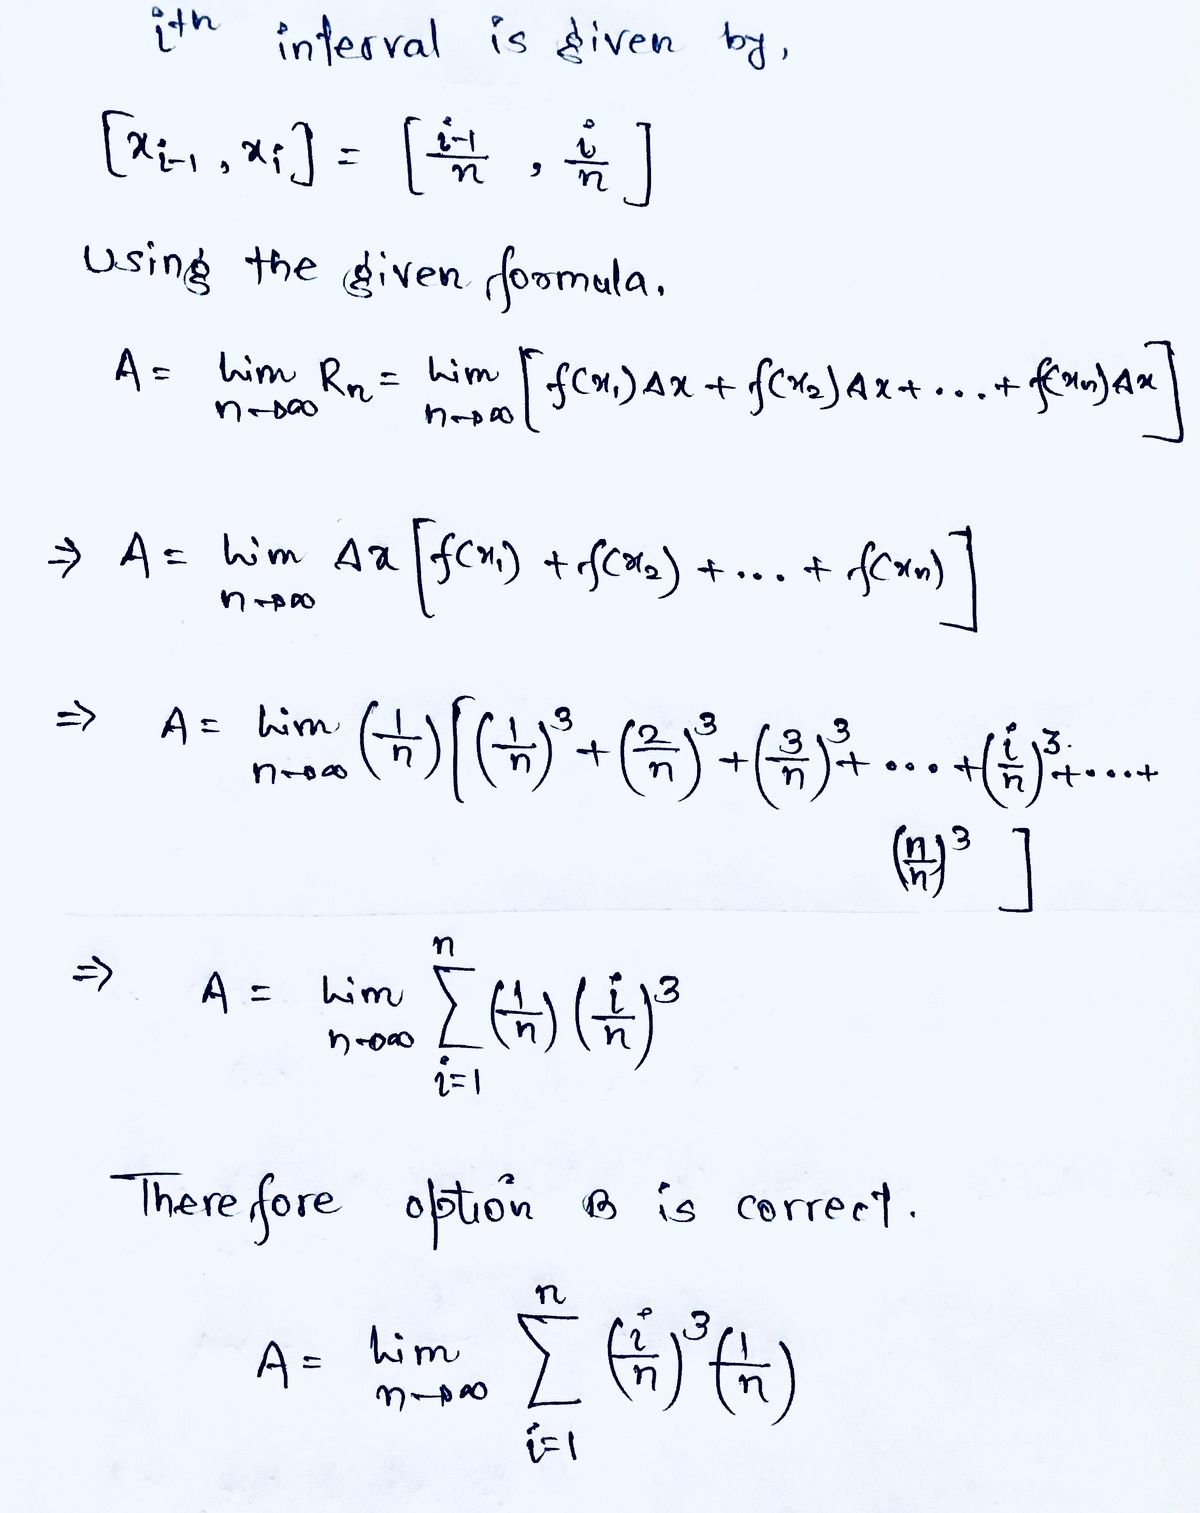 ith interval is given by,
[x_{i-1}, x_i] = [\frac{i-1}{n}, \frac{i}{n}]
Using the given formula.
A = \lim_{n→∞} R_n = \lim_{n→∞} [f(x_1)Δx + f(x_2)Δx + ... + f(x_n)Δx]
⇒ A = \lim_{n→∞} Δx [f(x_1) + f(x_2) + ... + f(x_n)]
⇒ A = \lim_{n→∞} (\frac{1}{n}) [(\frac{1}{n})^3 + (\frac{2}{n})^3 + (\frac{3}{n})^3 + ... + (\frac{i}{n})^3 + .... +
(\frac{n}{n})^3 ]
⇒ A = \lim_{n→∞} \sum_{i=1}^{n} (\frac{1}{n}) (\frac{i}{n})^3
Therefore option B is correct.
A = \lim_{n→∞} \sum_{i=1}^{n} (\frac{i}{n})^3 (\frac{1}{n})